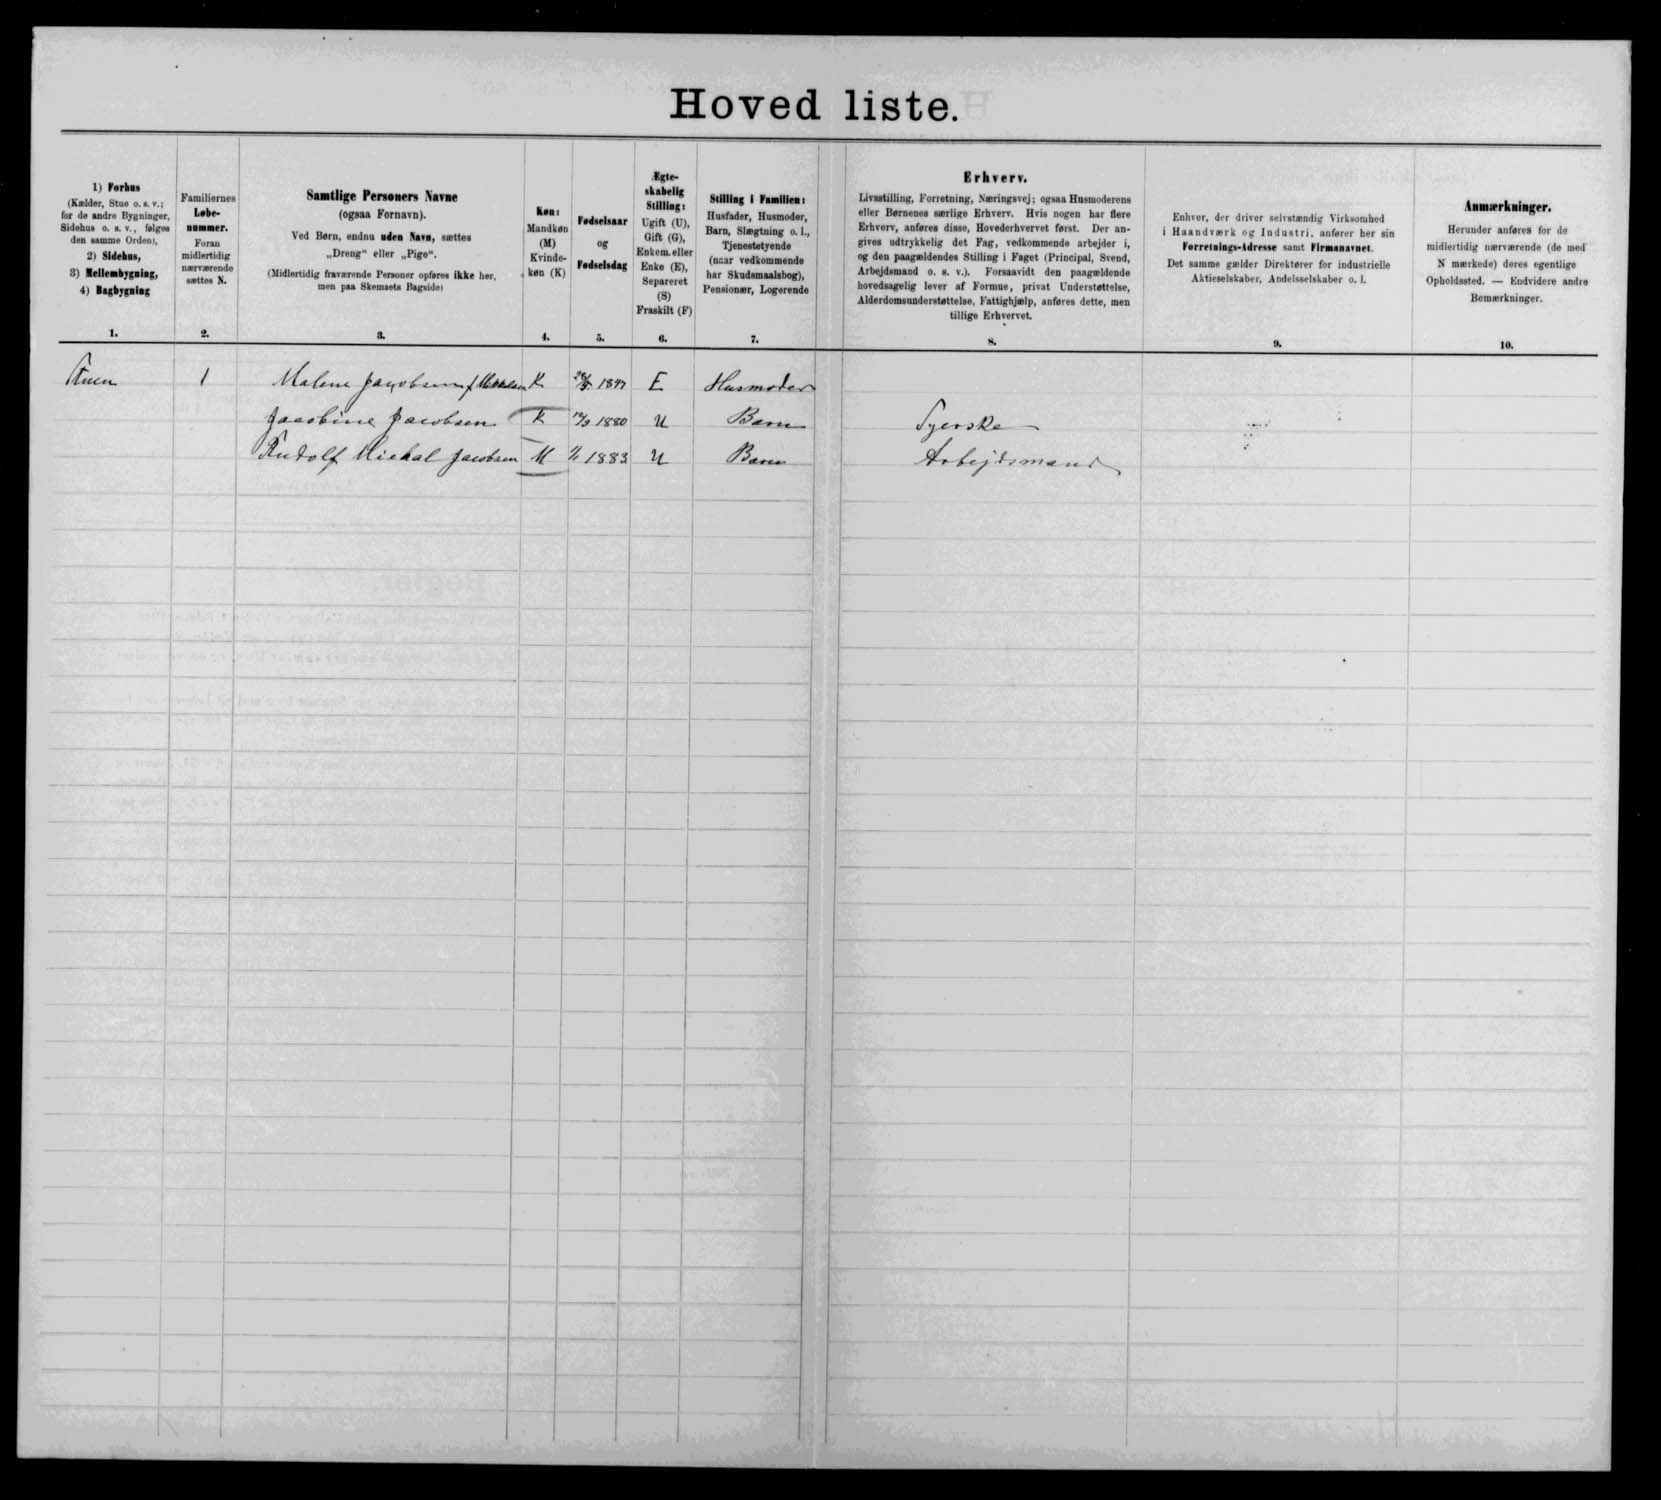 Hoved liste.
1) Forhus
(Kælder, Stue o. s. v.;
for de andre Bygninger,
Sidehus o. s. v., følges
den samme Orden),
2) Sidehus,
3) Mellembygning,
4) Bagbygning
1.
Familiernes
Løbe-
nummer.
Foran
midlertidig
nærværende
sættes N.
2.
Samtlige Personers Navne
(ogsaa Fornavn).
Ved Børn, endnu uden Navn, sættes
„Dreng“ eller „Pige“.
(Midlertidig fraværende Personer opføres ikke her,
men paa Skemaets Bagside)
3.
Køn:
Mandkøn
(M)
Kvinde-
køn (K)
4.
Fødselsaar
og
Fødselsdag
5.
Ægte-
skabelig
Stilling:
Ugift (U),
Gift (G),
Enkem. eller
Enke (E),
Separeret
(S)
Fraskilt (F)
6.
Stilling i Familien:
Husfader, Husmoder,
Barn, Slægtning o. l.,
Tjenestetyende
(naar vedkommende
har Skudsmaalsbog),
Pensionær, Logerende
7.
Erhverv.
Livsstilling, Forretning, Næringsvej; ogsaa Husmoderens
eller Børnenes særlige Erhverv. Hvis nogen har flere
Erhverv, anføres disse, Hovederhvervet først. Der an-
gives udtrykkelig det Fag, vedkommende arbejder i,
og den paagældendes Stilling i Faget (Principal, Svend,
Arbejdsmand o. s. v.). Forsaavidt den paagældende
hovedsagelig lever af Formue, privat Understøttelse,
Alderdomsunderstøttelse, Fattighjælp, anføres dette, men
tillige Erhvervet.
8.
Enhver, der driver selvstændig Virksomhed
i Haandværk og Industri, anfører her sin
Forretnings-Adresse samt Firmanavnet.
Det samme gælder Direktører for industrielle
Aktieselskaber, Andelsselskaber o. l.
9.
Anmærkninger.
Herunder anføres for de
midlertidig nærværende (de med
N mærkede) deres egentlige
Opholdssted. — Endvidere andre
Bemærkninger.
10.
Stuen 1 Malene Jacobsen f. K E Husmoder
Jacobine Jacobsen K 1880 U Barn Syerske
Rudolf Michal Jacobsen M 1883 U Barn Arbejdsmand